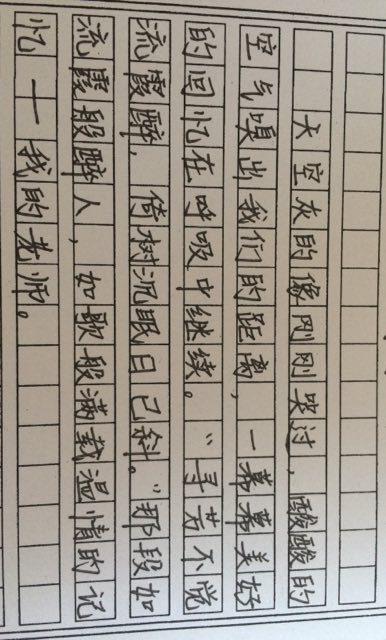 天空灰的像刚刚哭过，酸酸的
空气嗅出我们的距离，一幕幕美好
的回忆在呼吸中继续。“寻芳不觉
流霞醉，倚树沉眠日已斜。”那段如
流霞般醉人，如歌般满载温情的记
忆—我的老师。